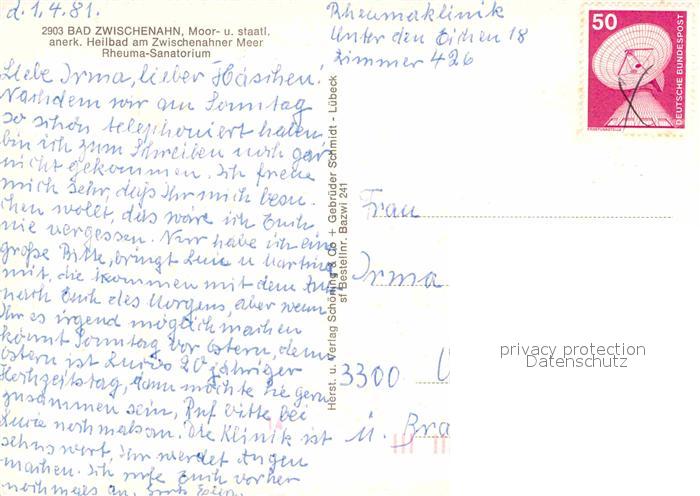 d. 1.4.81.
2903 BAD ZWISCHENAHN, Moor- u. staatl.
anerk. Heilbad am Zwischenahner Meer
Rheuma-Sanatorium
Liebe Irma, lieber Häschen!
Nachdem wir am Sonntag
so schön telephoniert haben
bin ich zum Schreiben noch gar
nicht gekommen. Ich freue
mich sehr, daß Ihr mich besu-
chen wollt, das wäre ich Euch
nie vergessen. Nur habe ich ein
große Bitte, bringt Luie u Martine
mit, die kommen mit dem
nach Euch des Morgens, aber wenn
Ihr es irgend möglich machen
könnt Sonntag vor Ostern, denn
Ostern ist 20 jähriger
Hochzeitstag, dann möchte sie gern
zusammen sein, Ruf bitte bei
nochmals an. Die Klinik ist
sehnswert, Ihr werdet Augen
machen. Ich rufe Euch vorher
nochmals an.
Herst. u. Verlag Schöning & Co + Gebrüder Schmidt - Lübeck
sf Bestellnr. Bazwi 241
Rheumaklinik
Unter den Eichen 18
Zimmer 426
50
DEUTSCHE BUNDESPOST
ERDEFUNKSTELLE
Frau
Irma
3300
Bra
privacy protection
Datenschutz